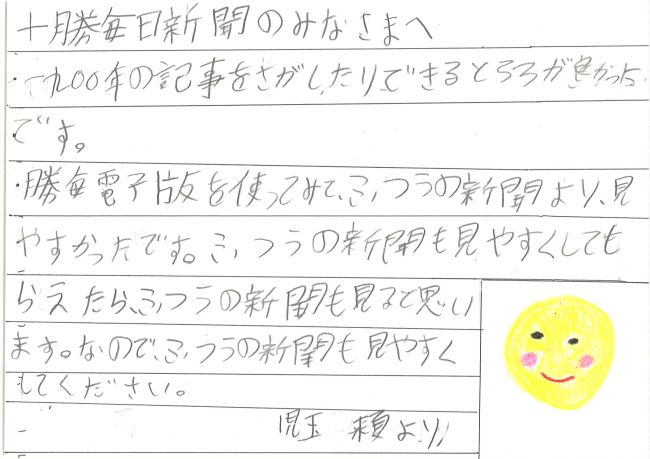 十勝毎日新聞のみなさまへ
・一九〇〇年の記事をさがしたりできるところが良かった
です。
・勝毎電子版を使ってみて、ふつうの新聞より、見
やすかったです。ふつうの新聞も見やすくしても
らえたら、ふつうの新聞も見ると思い
ます。なので、ふつうの新聞も見やすく
してください。
児玉 頼より